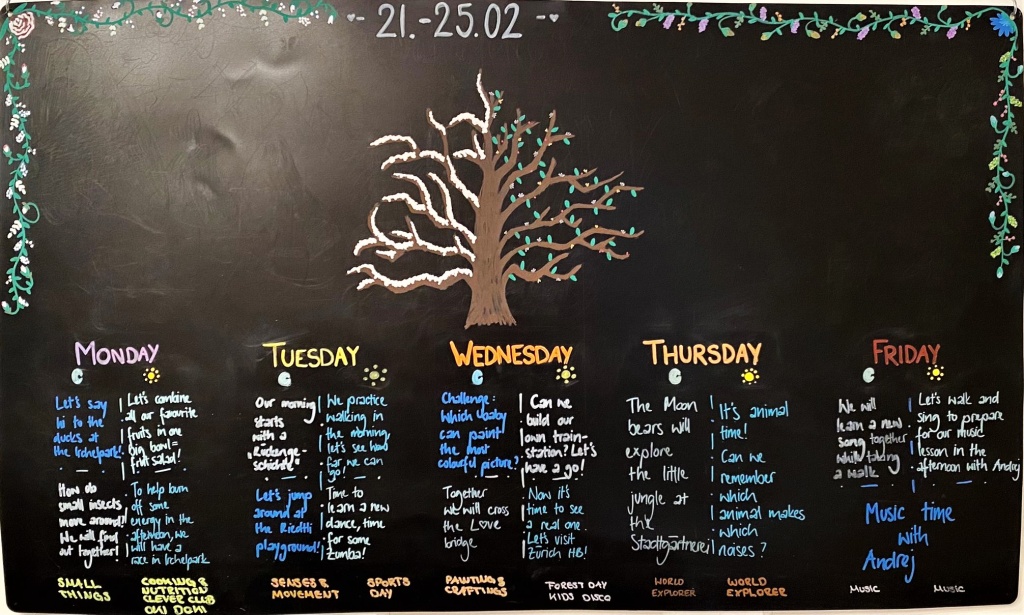 21.-25.02
MONDAY
Let's say
hi to the
ducks at
the Irchelpark!
Let's combine
all our favourite
fruits in one
big bowl=
fruit salad!
How do
small insects
move around?
We will find
out together!
To help burn
off some
energy in the
afternoon, we
will have a
race in Irchelpark.
SMALL
THINGS
COOKING &
NUTRITION
CLEVER CLUB
TUESDAY
Our morning
starts
with a
"Rückenge-
schichte"
We practice
walking in
the morning,
let's see how
far we can
go!
Let's jump
around at
the Riedtli
playground!
Time to
learn a new
dance, time
for some
Zumba!
SENSES &
MOVEMENT
SPORTS
DAY
WEDNESDAY
Challenge:
Which baby
can paint
the most
colourful picture?
Can we
build our
own train-
station? Let's
have a go!
Together
we will cross
the Love
bridge
Now it's
time to see
a real one.
Let's visit
Zürich HB!
PAINTING &
CRAFTINGS
FOREST DAY
KIDS DISCO
THURSDAY
The Moon
bears will
explore
the little
jungle at
the
Stadtgärtnerei
It's animal
time!
Can we
remember
which
animal makes
which
noises?
WORLD
EXPLORER
WORLD
EXPLORER
FRIDAY
We will
learn a new
song together
while taking
a walk.
Let's walk and
sing to prepare
for our music
lesson in the
afternoon with Andrej
Music time
with
Andrej
MUSIC
MUSIC